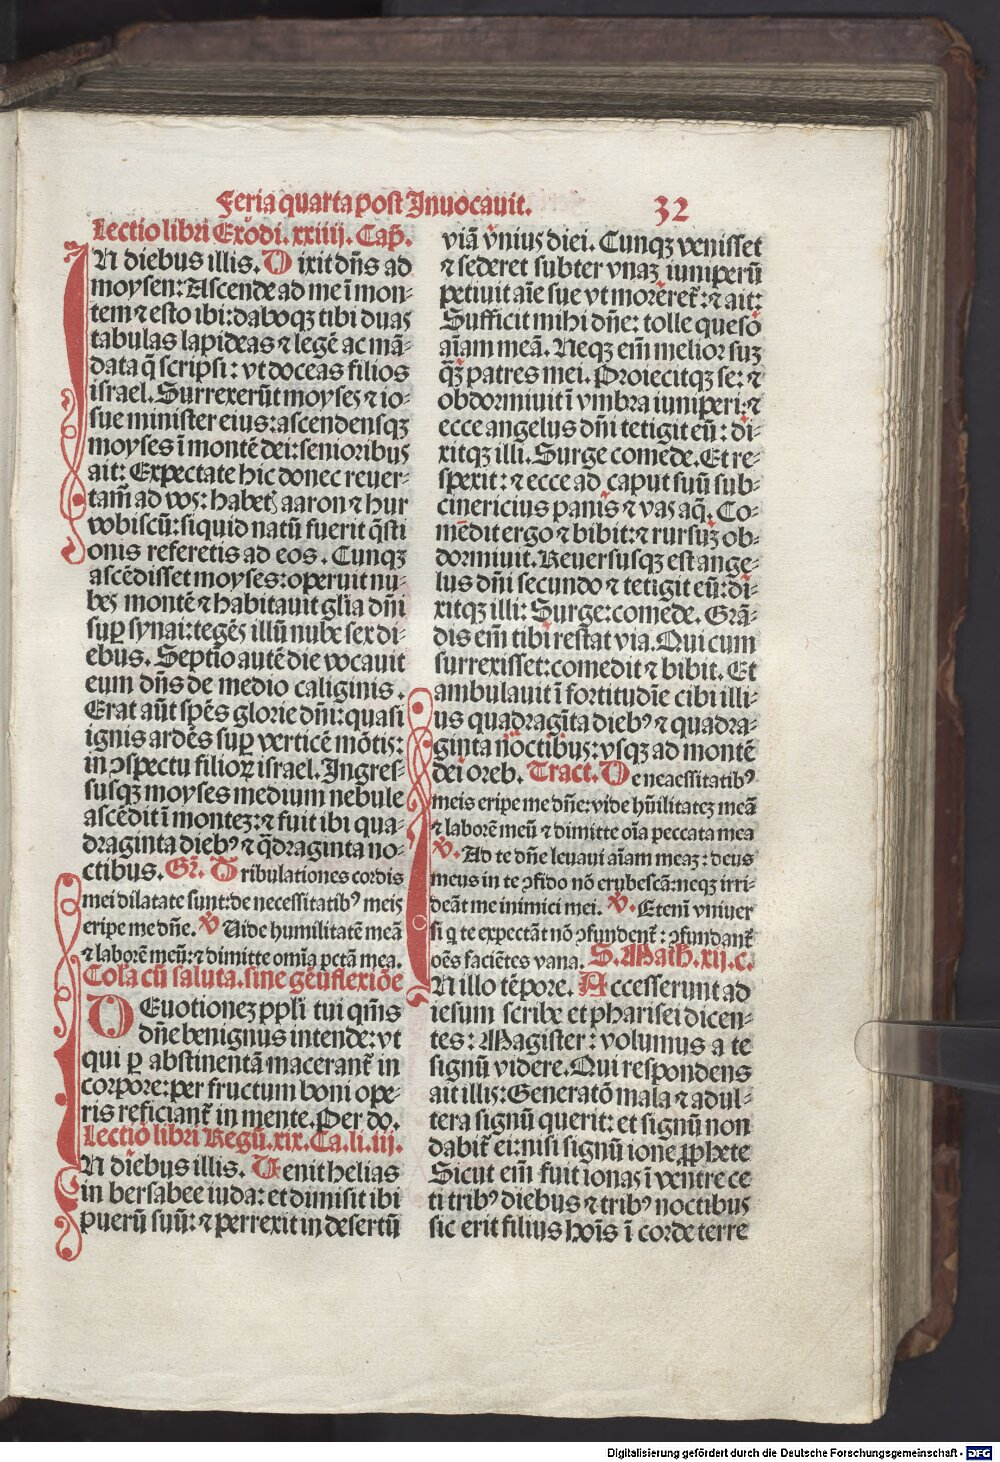 Feria quarta post Inuocauit. 32
Lectio libri Exodi. xxiiij. Cap̃.
IN diebus illis. Dixit dñs ad
moysen: Ascende ad me ĩ mon⸗
tem ⁊ esto ibi: daboqꝫ tibi duas
tabulas lapideas ⁊ legẽ ac mã⸗
data q̃ scripsi: vt doceas filios
israel. Surrexerũt moyses ⁊ io⸗
sue minister eius: ascendensqꝫ
moyses ĩ montẽ dei: senioribus
ait: Expectate hic donec reuer⸗
tam̃ ad vos: habetꝭ aaron ⁊ hur
vobiscũ: siquid natũ fuerit q̃sti
onis referetis ad eos. Cunqꝫ
ascẽdisset moyses: operuit nu⸗
bes montẽ ⁊ habitauit glĩa dñi
suꝑ synai: tegẽs illũ nube sex di⸗
ebus. Septĩo autẽ die vocauit
eum dñs de medio caliginis.
Erat aũt spẽs glorie dñi: quasi
ignis ardẽs suꝑ verticẽ mõtis:
in ꝯspectu filioꝝ israel. Ingres⸗
susqꝫ moyses medium nebule
ascẽdit ĩ monteꝫ: ⁊ fuit ibi qua⸗
draginta diebꝰ ⁊ q̃draginta no⸗
ctibus. Gr̃. Tribulationes cordis
mei dilatate sunt: de necessitatibꝰ meis
eripe me dñe. ℣ Uide humilitatẽ meã
⁊ laborẽ meũ: ⁊ dimitte omĩa pctã mea.
Cola cũ saluta. sine gẽuflexiõe
DEuotioneꝫ ppĺi tui qm̃s
dñe benignus intende: vt
qui ꝑ abstinentã macerant̃ in
corpore: per fructum boni ope⸗
ris reficiant̃ in mente. Per do.
Lectio libri Regũ. xix. Ca. li. iij.
IN diebus illis. Uenit helias
in bersabee iuda: et dimisit ibi
puerũ suũ: ⁊ perrexit in desertũ
viã vnius diei. Cunqꝫ venisset
⁊ sederet subter vnaꝫ iuniperũ
petiuit aĩe sue vt moreret̃: ⁊ ait:
Sufficit mihi dñe: tolle queso
aĩam meã. Neqꝫ em̃ melior suꝫ
q̃ꝫ patres mei. Proiecitqꝫ se: ⁊
obdormiuit ĩ vmbra iuniperi: ⁊
ecce angelus dñi tetigit eũ: di⸗
xitqꝫ illi. Surge comede. Et re⸗
spexit: ⁊ ecce ad caput suũ sub⸗
cinericius panis ⁊ vas aq̃. Co⸗
medit ergo ⁊ bibit: ⁊ rursuꝫ ob⸗
dormiuit. Reuersusqꝫ est ange⸗
lus dñi secundo ⁊ tetigit eũ: di⸗
xitqꝫ illi: Surge: comede. Grã⸗
dis em̃ tibi restat via. Qui cum
surrexisset: comedit ⁊ bibit. Et
ambulauit ĩ fortitudĩe cibi illi⸗
us quadragĩta diebꝰ ⁊ quadra⸗
ginta noctibus: vsqꝫ ad montẽ
dei oreb. Tract. De neaessitatibꝰ
meis eripe me dñe: vide hũilitateꝫ meã
⁊ laborẽ meũ ⁊ dimitte oĩa peccata mea
℣. Ad te dñe leuaui aĩam meaꝫ: deus
meus in te ꝯfido nõ erubescã: neqꝫ irri⸗
deãt me inimici mei. ℣. Etenĩ vniuer
si q te expectãt nõ ꝯfundent̃: ꝯfundant̃
oẽs faciẽtes vana. S. Math. xij. c.
IN illo tẽpore. Accesserunt ad
iesum scribe et pharisei dicen⸗
tes: Magister: volumus a te
signũ videre. Qui respondens
ait illis: Generatõ mala ⁊ adul⸗
tera signũ querit: et signũ non
dabit̃ ei: nisi signũ ione ꝓphete
Sicut em̃ fuit ionas ĩ ventre ce
ti tribꝰ diebus ⁊ tribꝰ noctibus
sic erit filius hoĩs ĩ corde terre
Digitalisierung gefördert durch die Deutsche Forschungsgemeinschaft - DFG